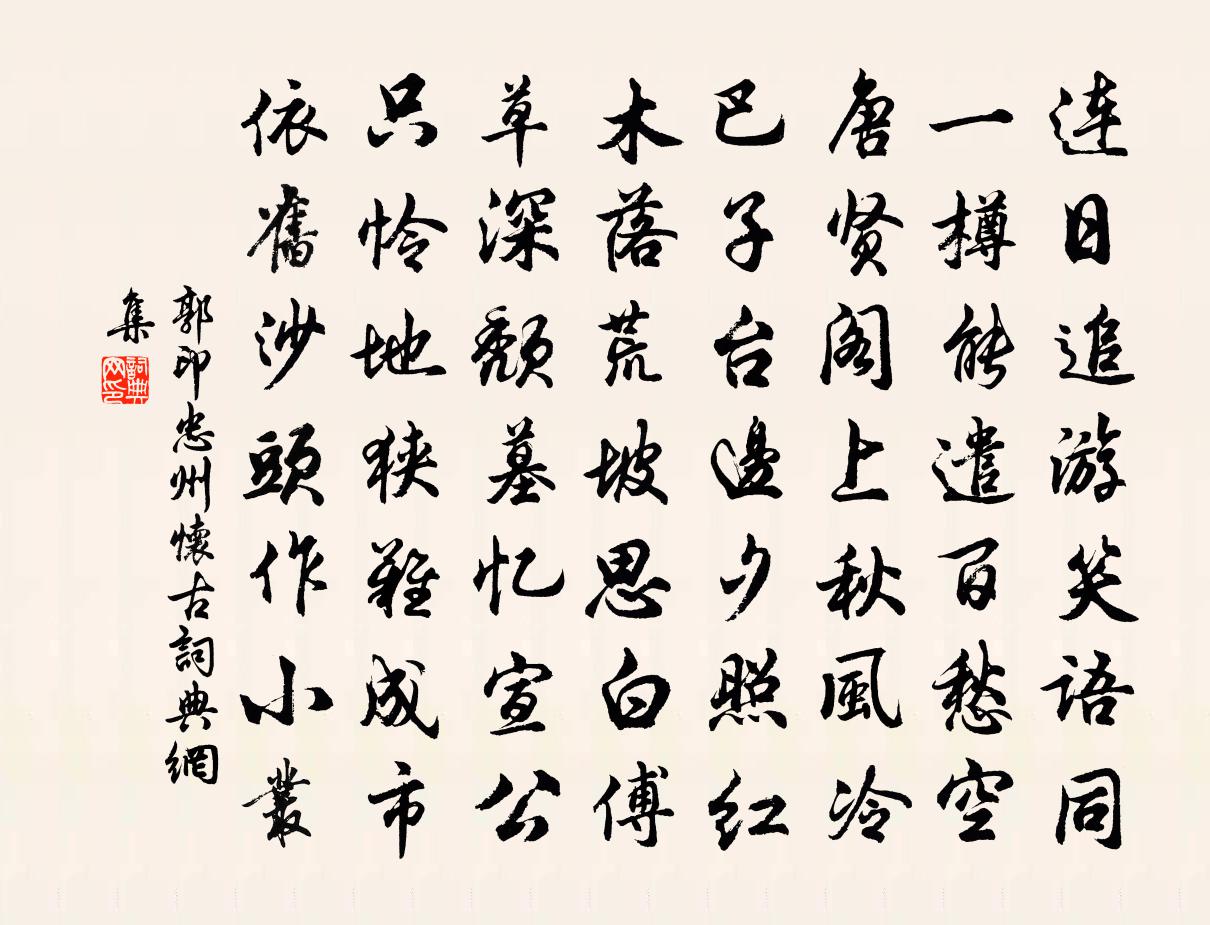 连日追游笑语同
一樽能遣百愁空
唐贤阁上秋風冷
巴子台邊夕照红
木落荒坡思白傅
草深颓墓忆宣公
只怜地狭難成市
依舊沙頭作小叢
郭印忠州懷古詞典網
集
詞典网印